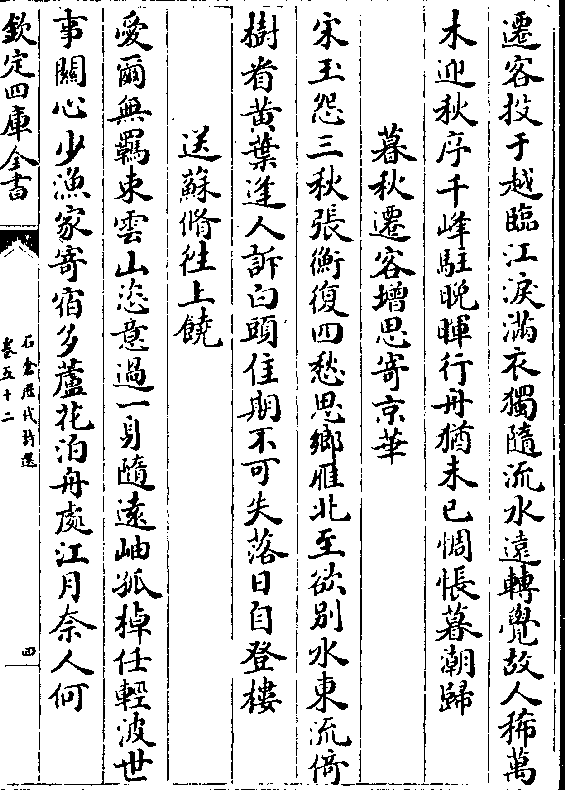 遷客投于越臨江淚滿衣獨隨流水遠轉覺故人稀萬
木迎秋序千峰駐晚暉行舟猶未已惆悵暮潮歸
暮秋遷客增思寄京華
宋玉怨三秋張衡復四愁思鄉雁北至欲别水東流倚
樹看黄葉逢人訴白頭佳期不可失落日自登樓
送蘇脩往上饒
愛爾無羈束雲山恣意過一身隨遠岫孤棹任輕波世
事關心少漁家寄宿多蘆花泊舟處江月奈人何
欽定四庫全書
石倉歷代詩選
卷五十二
四